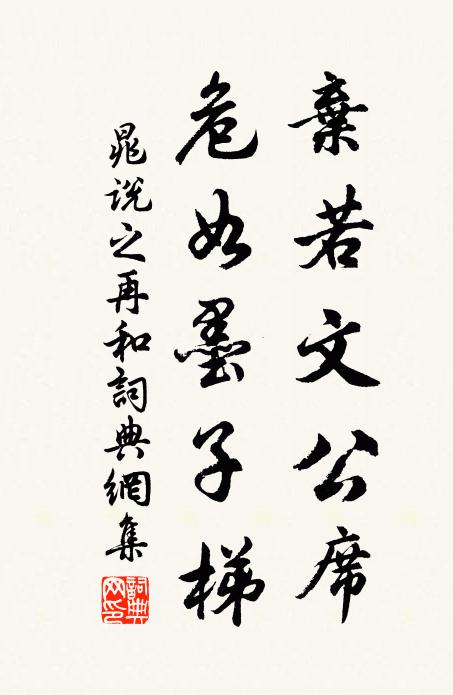 棄若文公席
危如墨子梯
晁説之再和詞典網集
詞典網印